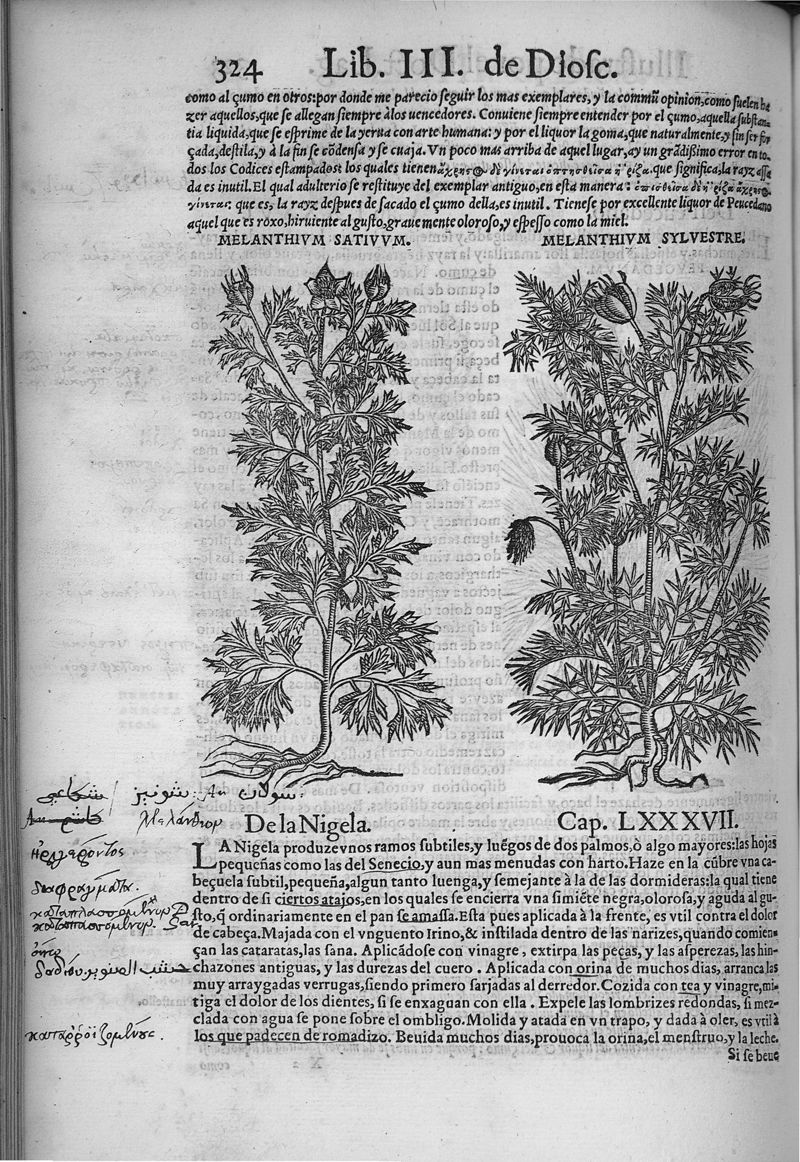 324 Lib. III. de Diosc.
como al çumo en otros: por donde me parecio seguir los mas exemplares, y la commũ opinion, como suelen ha
zer aquellos, que se allegan siempre àlos uencedores. Conuiene siempre entender por el çumo, aquella substan
tia liquida, que se esprime de la yerua con arte humana: y por el liquor la goma, que naturalmente, y sin ser for
çada, destila, y à la fin se cõdensa y se cuaja. Vn poco mas arriba de aquel lugar, ay un grãdißimo error en to
dos los Codices estampados: los quales tienen que significa, la rayz assa
da es inutil. El qual adulterio se restituye del exemplar antiguo, en esta manera:
que es, la rayz despues de sacado el çumo della, es inutil. Tienese por excellente liquor de Peucedano
aquel que es roxo, hiruiente al gusto, graue mente oloroso, y espesso como la miel.
MELANTHIVM SATIVVM. MELANTHIVM SYLVESTRE.
شكاعى شونيز: شولان:
μελάνθιον
De la Nigela. Cap. LXXXVII.
LA Nigela produze vnos ramos subtiles, y luẽgos de dos palmos, ò algo mayores: las hojas
pequeñas como las del Senecio, y aun mas menudas con harto. Haze en la cũbre vna ca-
beçuela subtil, pequeña, algun tanto luenga, y semejante à la de las dormideras: la qual tiene
dentro de si ciertos atajos, en los quales se encierra vna simiẽte negra, olorosa, y aguda al gu-
sto, q̃ ordinariamente en el pan se amassa. Esta pues aplicada à la frente, es vtil contra el dolor
de cabeça. Majada con el vnguento Irino, & instilada dentro de las narizes, quando comien-
çan las cataratas, las sana. Aplicãdose con vinagre, extirpa las peças, y las asperezas, las hin-
chazones antiguas, y las durezas del cuero. Aplicada con orina de muchos dias, arranca las
muy arraygadas verrugas, siendo primero sarjadas al derredor. Cozida con tea y vinagre, mi-
tiga el dolor de los dientes, si se enxaguan con ella. Expele las lombrizes redondas, si mez-
clada con agua se pone sobre el ombligo. Molida y atada en vn trapo, y dada à oler, es vtil à
los que padecen de romadizo. Beuida muchos dias, prouoca la orina, el menstruo, y la leche.
Si se beue
ἠριγέροντος
διαφράγματα.
καταπλασσόμενον
ὄυρῳ
δαδίου خشب الصنوبر
καταῤῥοϊζομένοις.